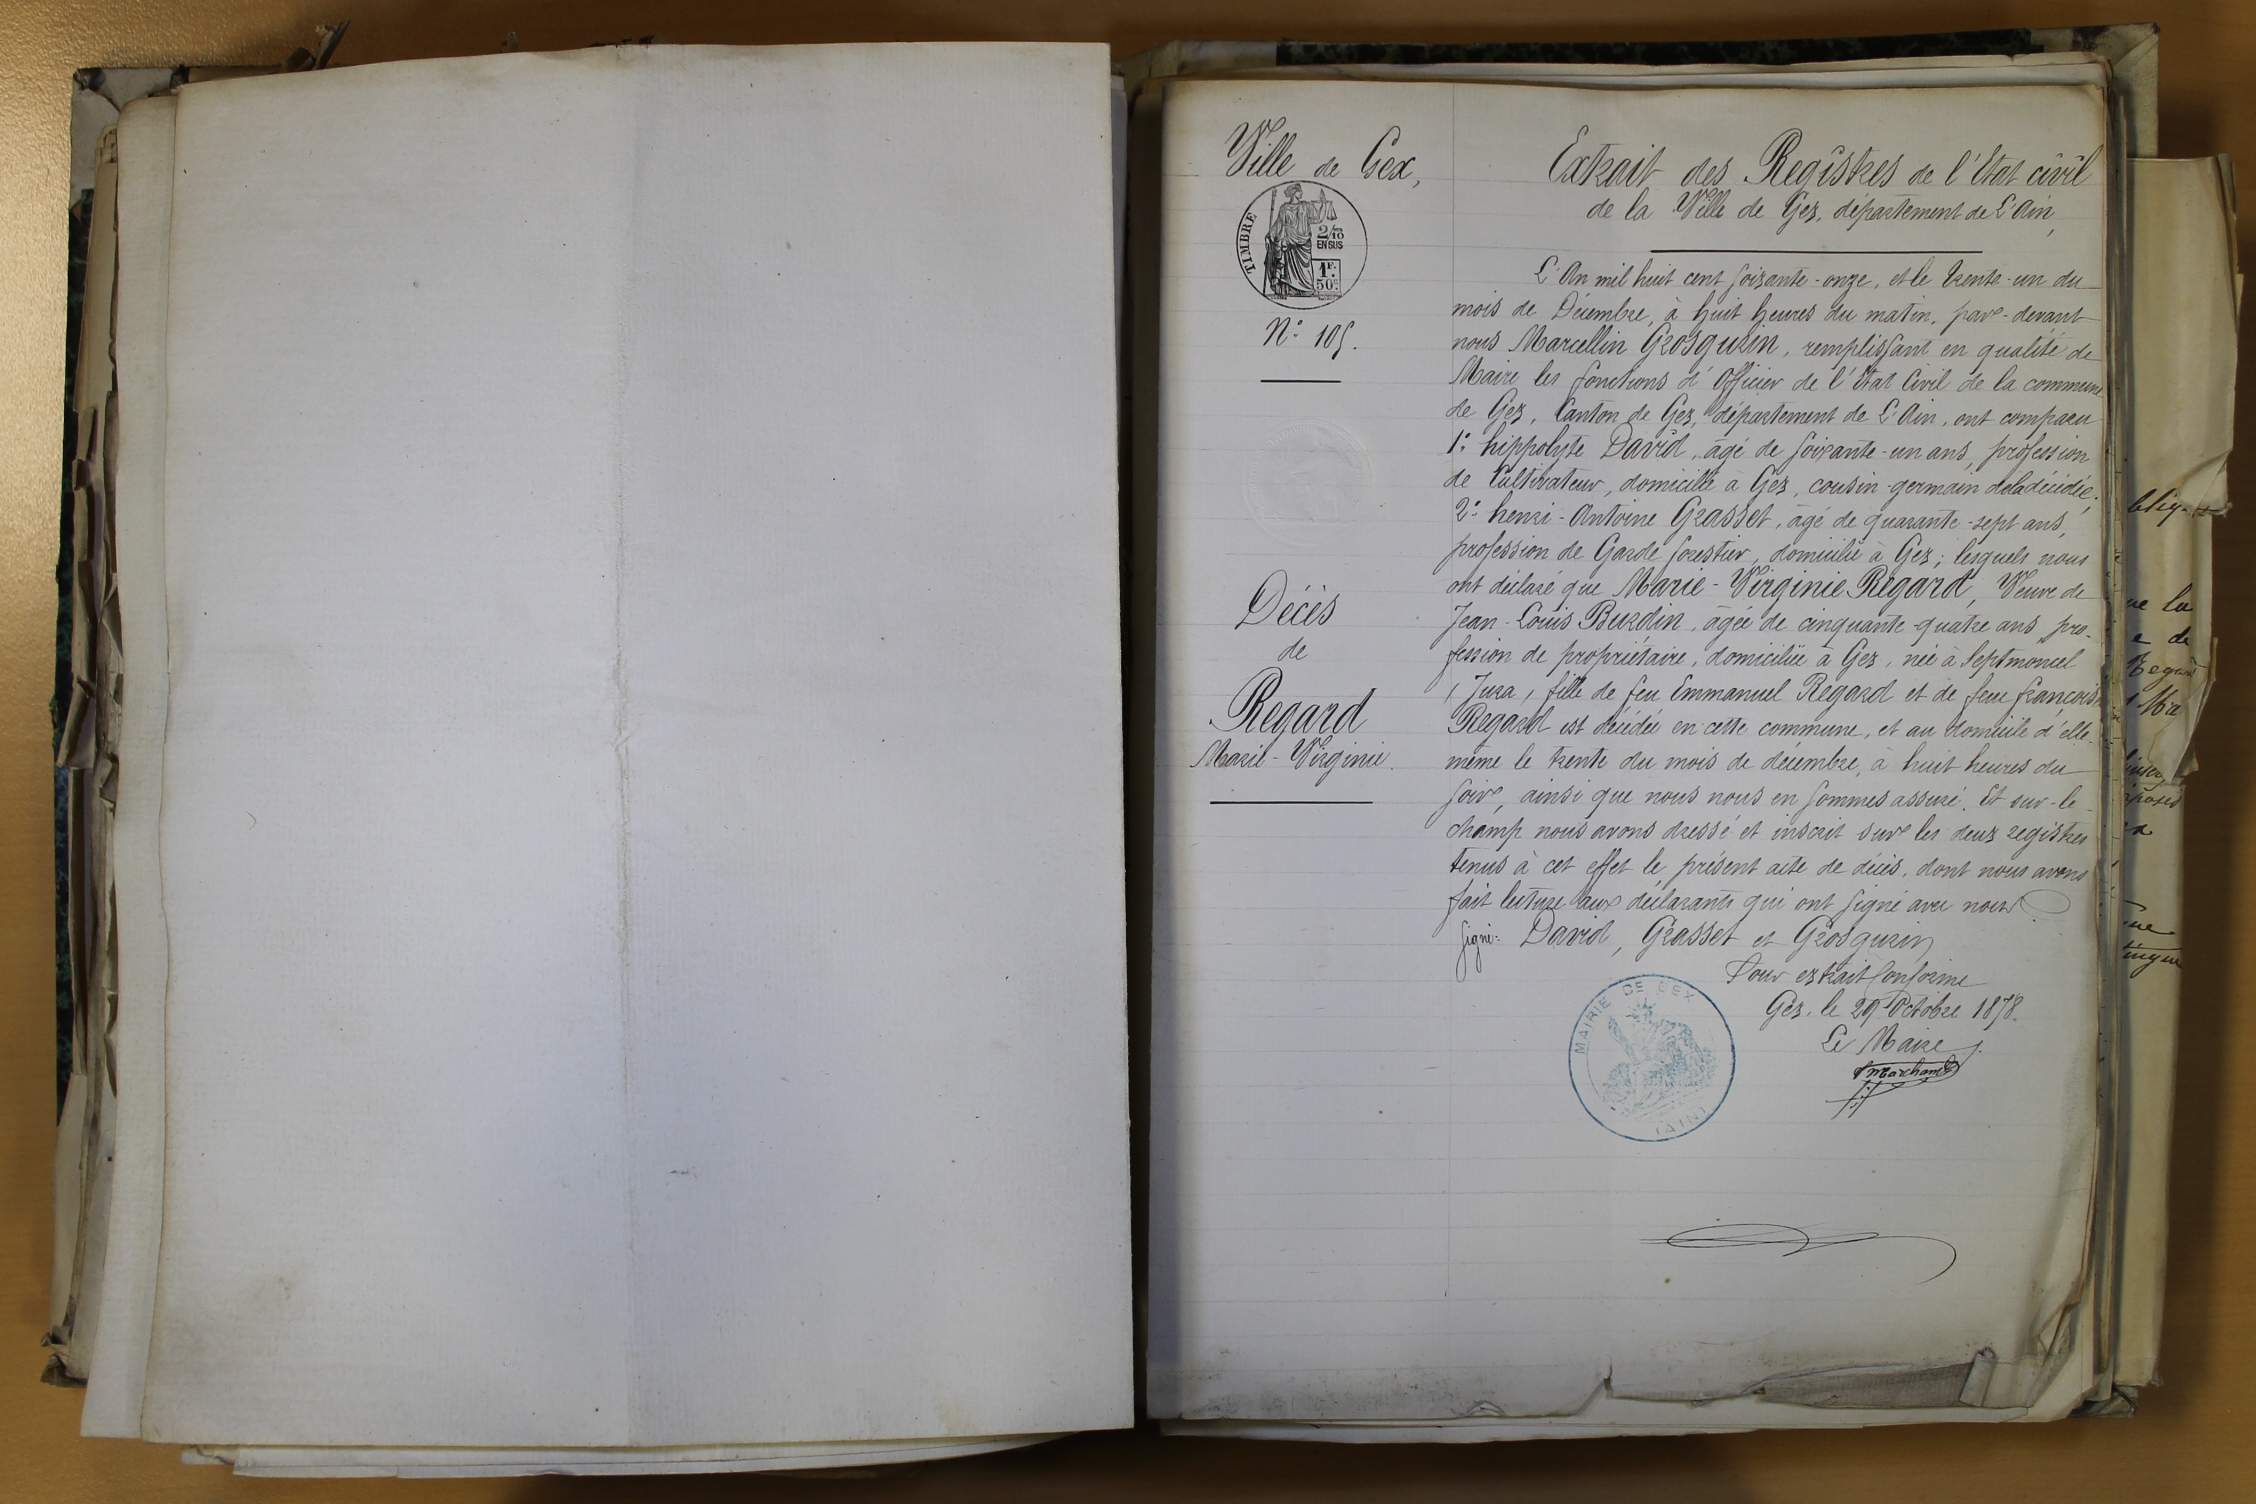 Ville de Gex,
TIMBRE
2/10
EN SUS
1F.
50c.
N° 105.
Décès
de
Regard
Marie-Virginie.
Extrait des Regîstres de l'Etat civil
de la Ville de Gex, département de L'Ain,
L'An mil huit cent soixante-onze, et le trente-un du
mois de Décembre, à huit heures du matin, par-devant
nous Marcellin Grosgurin, remplissant en qualité de
Maire les fonctions d'Officier de l'Etat Civil de la commune
de Gex, Canton de Gex, département de L'Ain, ont comparu
1° hippolyte David, âgé de soixante-un ans, profession
de Cultivateur, domicilié à Gex, cousin-germain de la décédée;
2° henri-Antoine Grasset, âgé de quarante-sept ans,
profession de Garde forestier, domicilié à Gex; lesquels nous
ont déclaré que Marie-Virginie Regard, Veuve de
Jean-Louis Burdin, âgée de cinquante-quatre ans, pro-
fession de propriétaire, domiciliée à Gex, née à Septmoncel
(Jura) fille de feu Emmanuel Regard et de feue françoise
Regard est décédée en cette commune, et au domicile d'elle-
même le trente du mois de décembre, à huit heures du
soir, ainsi que nous nous en sommes assuré. Et sur-le-
champ nous avons dressé et inscrit sur les deux registres
tenus à cet effet le présent acte de décès, dont nous avons
fait lecture aux déclarants qui ont signé avec nous.
Signé: David, Grasset et Grosgurin
Pour extrait Conforme
Gex, le 29 Octobre 1878.
Le Maire
Marchand
MAIRIE DE GEX
(AIN)
ue la
e de
Regard